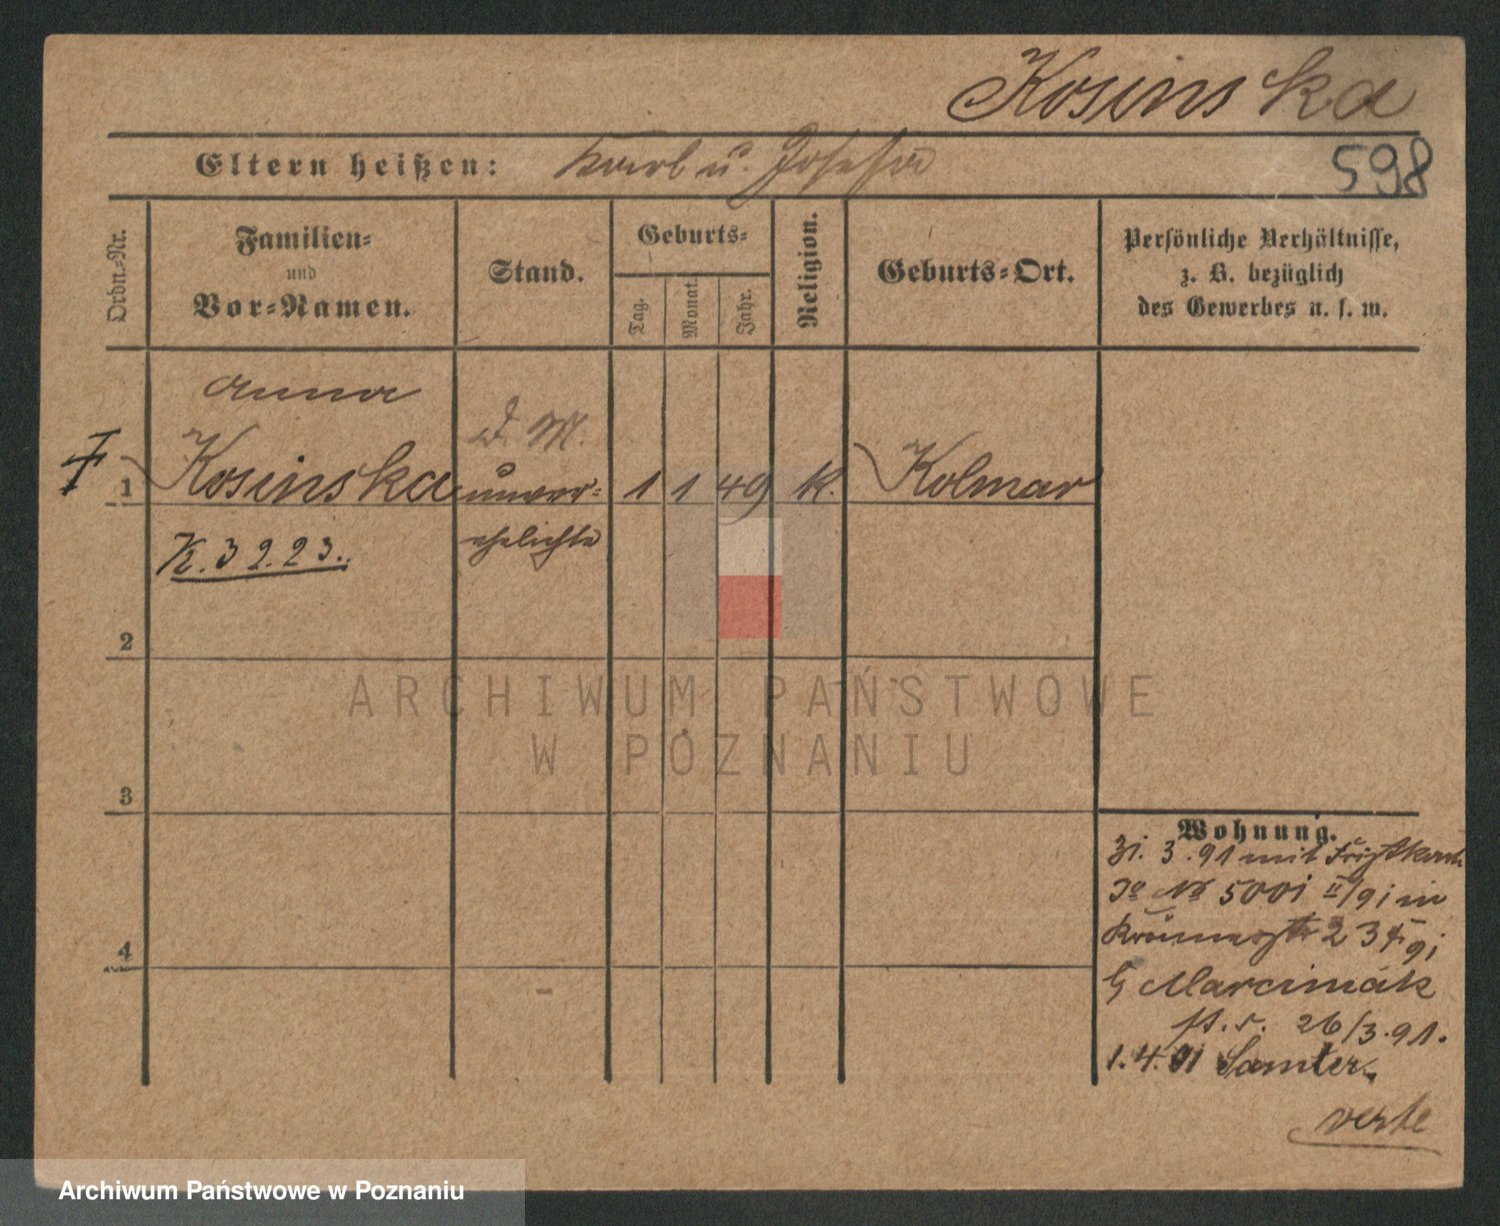 Kosinska
Eltern heißen: Karl u. Josefa
598
Ordn.-Nr.
Familien-
und
Vor-Namen.
Stand.
Geburts-
Tag.
Monat.
Jahr.
Religion.
Geburts-Ort.
Persönliche Verhältnisse,
z. B. bezüglich
des Gewerbes u. s. w.
Anna
D. M.
1 Kosinska unver- 1 1 49 k. Kolmar
ehelichte
K. 3 2. 23.
2
3
4
Wohnung.
31. 3. 91 mit
No 5001 II/91 in
23 91
Marcimák
26/3. 91.
1. 4. 91 Samter.
verte
ARCHIWUM PAŃSTWOWE
W POZNANIU
Archiwum Państwowe w Poznaniu